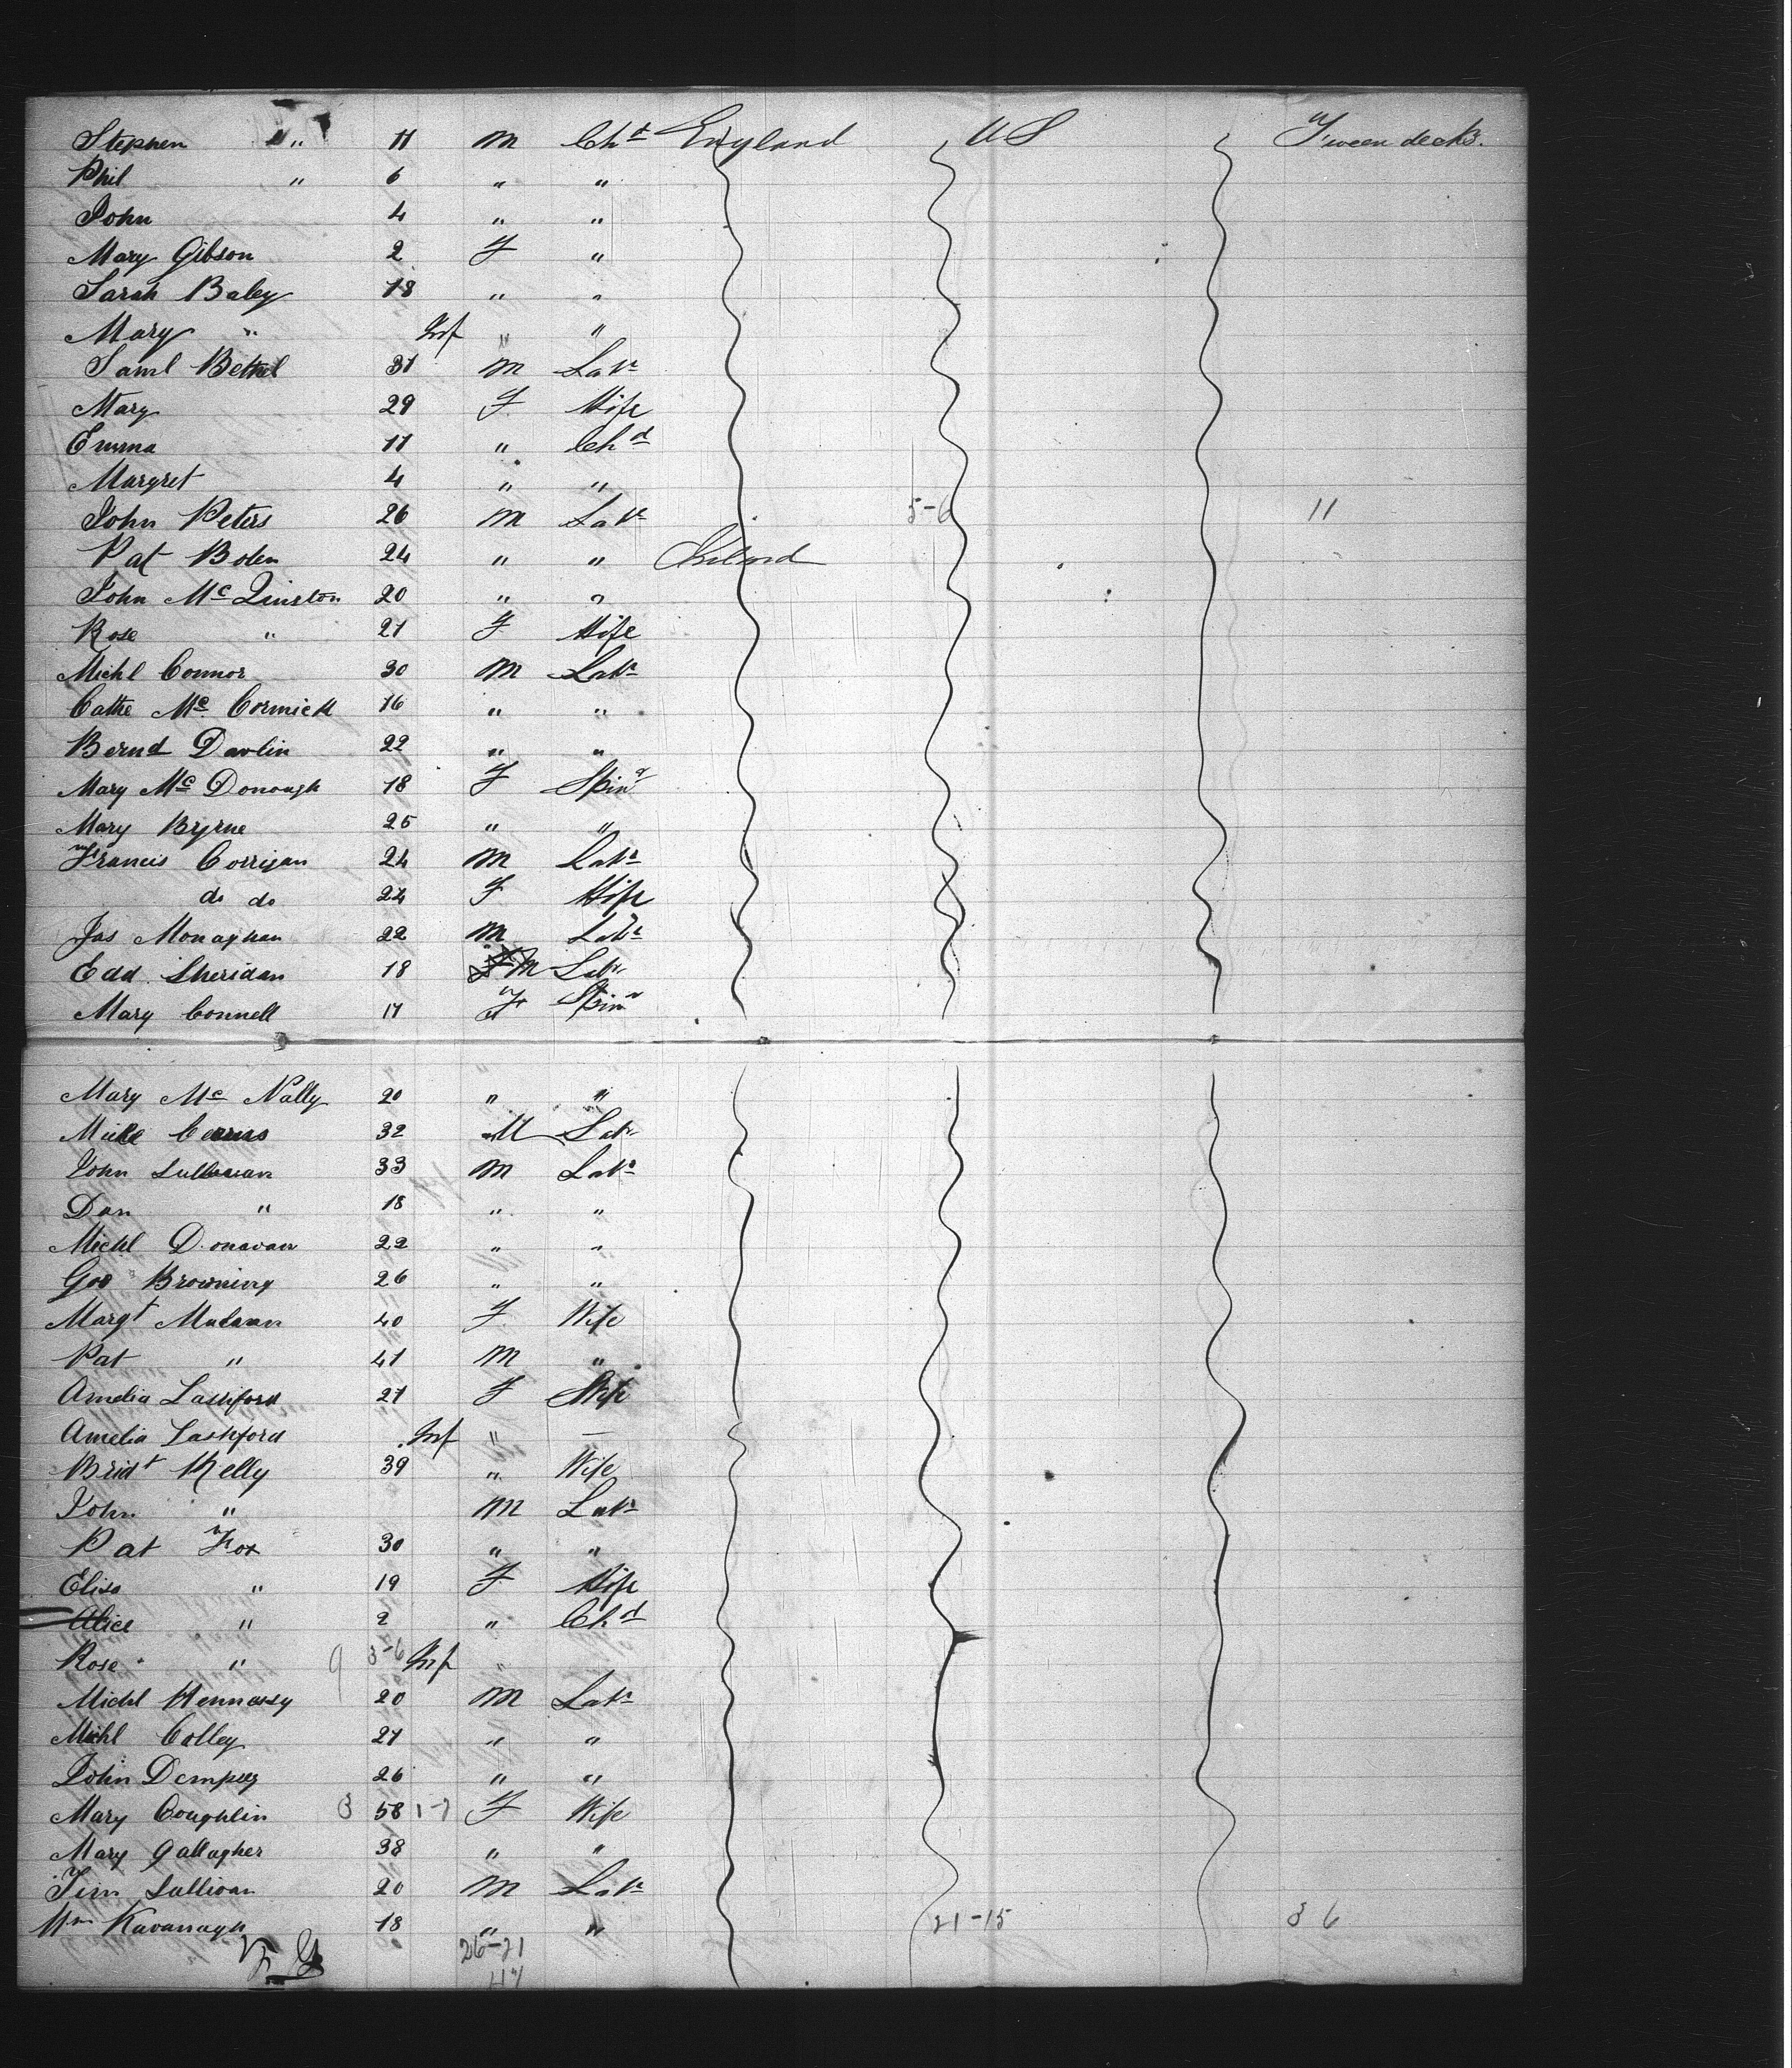 Stephen " 11 M Chd England U S Tween decks.
Phil " 6 " "
John 4 " "
Mary Gibson 2 F "
Sarah Baley 18 " "
Mary " Inf " "
Saml Bethel 31 M Labr
Mary 29 F Wife
Emma 11 " Chd
Margret 4 " "
John Peters 26 M Labr 5-6 11
Pat Bolen 24 " " Ireland
John Mc Linston 20 " "
Rose " 21 F Wife
Michl Connor 30 M Labr
Cathe Mc Cormick 16 " "
Bernd Davlin 22 " "
Mary Mc Donough 18 F Spinr
Mary Byrne 25 " "
Francis Corrigan 24 M Labr
do do 24 F Wife
Jas Monaghan 22 M Labr
Edd Sheridan 18 M Labr
Mary Connell 17 F Spinr
Mary Mc Nally 20 " "
Mike 32 M Labr
John Sullivan 33 M Labr
Dan " 18 " "
Michl Donavan 22 " "
Geo Browning 26 " "
Margt 40 F Wife
Pat " 41 M "
Amelia Lashford 21 F Wife
Amelia Lashford Inf " —
Bridt Kelly 39 " Wife
John " M Labr
Pat Fox 30 " "
Elisa " 19 F Wife
Alice " 2 " Chd
Rose " 9 3-6 Inf "
Michl Hennessy 20 M Labr
Michl Colley 21 " "
John Dempsey 26 " "
Mary Coughlin 3 58 1-7 F Wife
Mary Gallagher 38 " "
Tim Sullivan 20 M Labr
Wm Kavanagh 18 " " 21-15 36
26-21
47